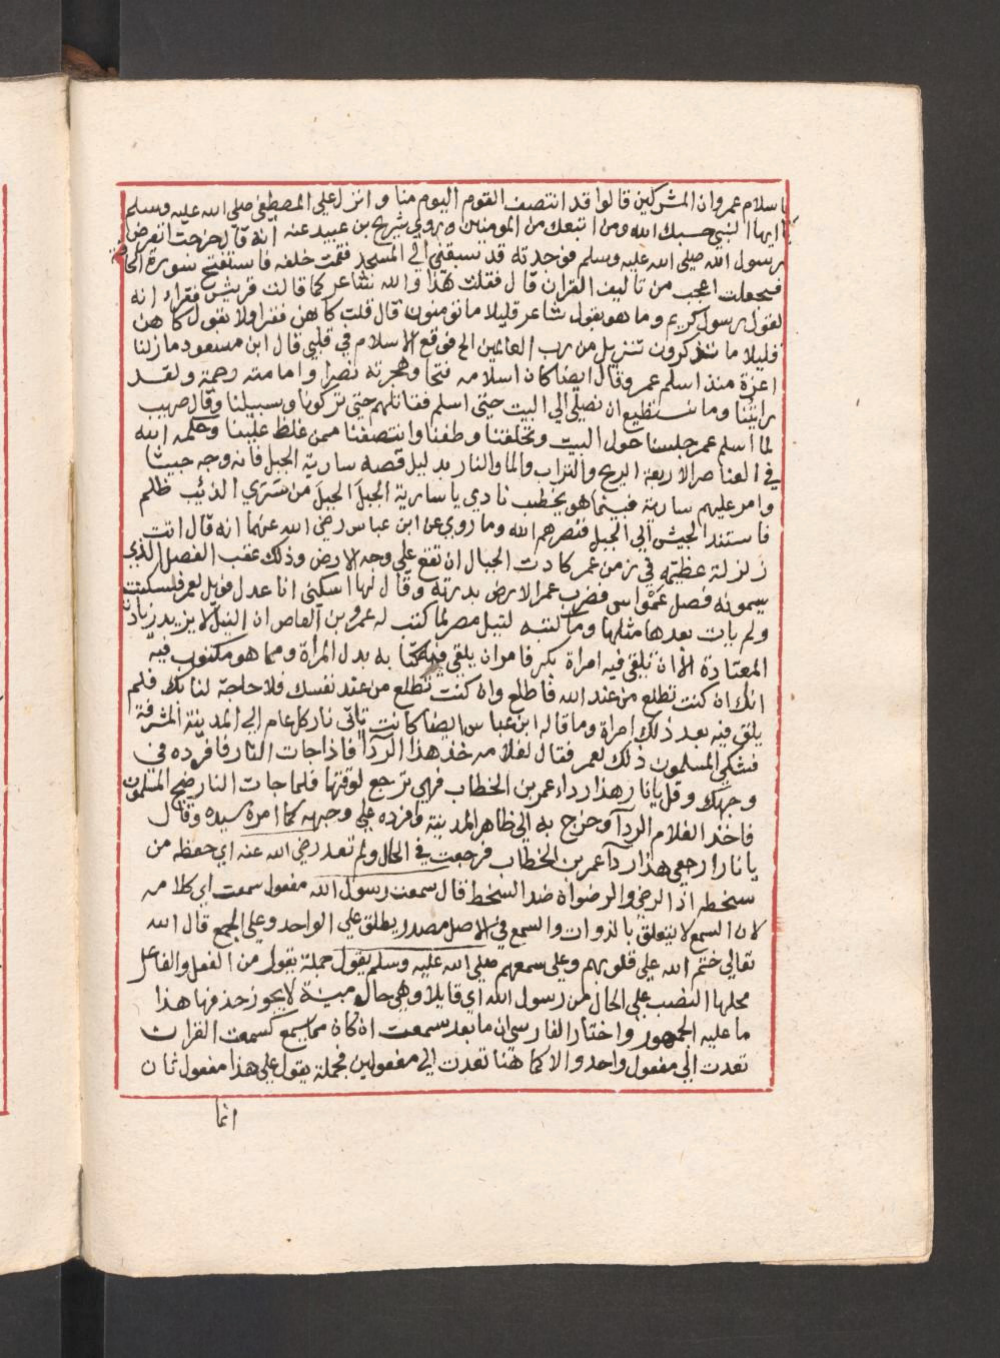 باسلام عمر وان المشركين قالوا قد انتصف القوم اليوم منا وانزل علي المصطفي صلي الله عليه وسلم
يا ايها النبي حسبك الله ومن اتبعك من المومنين وروي شريح بن عبيد عنه انه قال خرجت اتعرض
رسول الله صلي الله عليه وسلم فوجدته قد سبقني الي المسجد فقمت خلفه فاستفتح سورة الحاقة
فجعلت اعجب من تاليف القران قال فقلت هذا والله شاعر كما قالت قريش فقرا انه
لقول رسول كريم وما هو بقول شاعر قليلا ما تومنون قال قلت كاهن فقرا ولا بقول كاهن
قليلا ما تذكرون تنزيل من رب العالمين الخ فوقع الاسلام في قلبي قال ابن مسعود ما زلنا
اعزة منذ اسلم عمر وقال ايضا كان اسلامه فتحا وهجرته نصرا وامامته رحمة ولقد
رايتنا وما نستطيع ان نصلي الي البيت حتي اسلم فقاتلهم حتي تركونا وسبيلنا وقال صهيب
لما اسلم عمر جلسنا حول البيت وتحلقنا وطفنا وانتصفنا ممن غلظ علينا وحكمه الله
في العناصر الاربعة الريح والتراب والما والنار بدليل قصه سارية الجبل فانه وجه جيشا
وامر عليهم سارية فبينما هو يخطب نادي يا سارية الجبل الجبل من سترعي الذئب ظلم
فاستند الجيش الي الجبل فنصرهم الله وما روي عن ابن عباس رضي الله عنهما انه قال اتت
زلزلة عظيمه في زمن عمر كادت الجبال ان تقع علي وجه الارض وذلك عقب الفصل الذي
يسمونه فصل عمواس فضرب عمر الارض بدرته وقال لها اسكني انا عدل فويل لعمر فسكنت
ولم يات بعدها مثلها وما كتبه لنيل مصر لما كتب له عمرو بن العاص ان النيل لا يزيد زيادته
المعتادة الا ان يلقي فيه امراة بكر فامر ان يلقي فيه كتابه بدل المراة ومما هو مكتوب فيه
انك ان كنت تطلع من عند الله فاطلع وان كنت تطلع من عند نفسك فلا حاجة لنا بك فلم
يلق فيه بعد ذلك امراة وما قاله ابن عباس ايضا كانت تاتي نار كل عام الي المدينة المشرفة
فشكي المسلمون ذلك لعمر فقال لغلامه خذ هذا الردا فاذا جات النار فافرده في
وجهك وقل يا نار هذا رداء عمر بن الخطاب فهي ترجع لوقتها فلما جات النار ضج المسلمون
فاخذ الغلام الردا وخرج به الي ظاهر المدينة وافرده علي وجهه كما امره سيده وقال
يا نار ارجعي هذا ردا عمر بن الخطاب فرجعت في الحال ولم تعد رضي الله عنه اي حفظه من
سخطه اذ الرضي والرضوان ضد السخط قال سمعت رسول الله مفعول سمعت اي كلامه
لان السمع لا يتعلق بالذوات والسمع في الاصل مصدر يطلق علي الواحد وعلي الجمع قال الله
تعالي ختم الله علي قلوبهم وعلي سمعهم صلي الله عليه وسلم يقول جملة يقول من الفعل والفاعل
محلها النصب علي الحال من رسول الله اي قايلا وهي حال مبينة لا يجوز حذفها هذا
ما عليه الجمهور واختار الفارسي ان ما بعد سمعت ان كان مما يسمع كسمعت القران
تعدت الي مفعول واحد والا كما هنا تعدت الي مفعولين فجملة يقول علي هذا مفعول ثان
انما